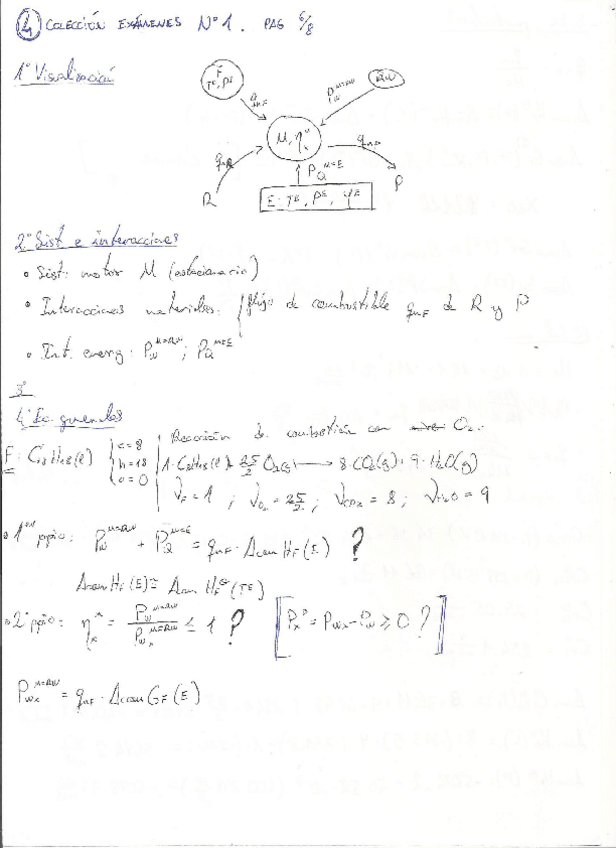 4 COLECCIÓN EXÁMENES Nº 1. PAG 6/8
1º Visualización
F
T^E, P^E
RW
q_nF
P_W^{M=RW}
M, η_x^*
q_nR
q_nP
P_Q^{M=E}
R
P
E: T^E, P^E, Ψ^E
2º Sist e interacciones
• Sist: motor M (estacionario)
• Interacciones materiales: { flujo de combustible q_nF de R y P
• Int. energ: P_W^{M=RW}; P_Q^{M=E}
3º
4º Ec generales
F: C8H18(l) { c=8 h=18 o=0
Reacción de combustión con O2:
1·C8H18(l) + 25/2 O2(g) → 8·CO2(g) + 9·H2O(g)
ν_F = 1 ; ν_O2 = 25/2 ; ν_CO2 = 8 ; ν_H2O = 9
• 1er ppio: P_W^{M=RW} + P_Q^{M=E} = q_nF · Δcom H_F(E) ?
Δcom H_F(E) ≅ Δcom H_F^⊖(T^E)
• 2º ppio: η_x^* = P_W^{M=RW} / P_Wx^{M=RW} ≤ 1 ? [P_x^P = P_Wx - P_W ≥ 0 ?]
P_Wx^{M=RW} = q_nF · Δcom G_F(E)